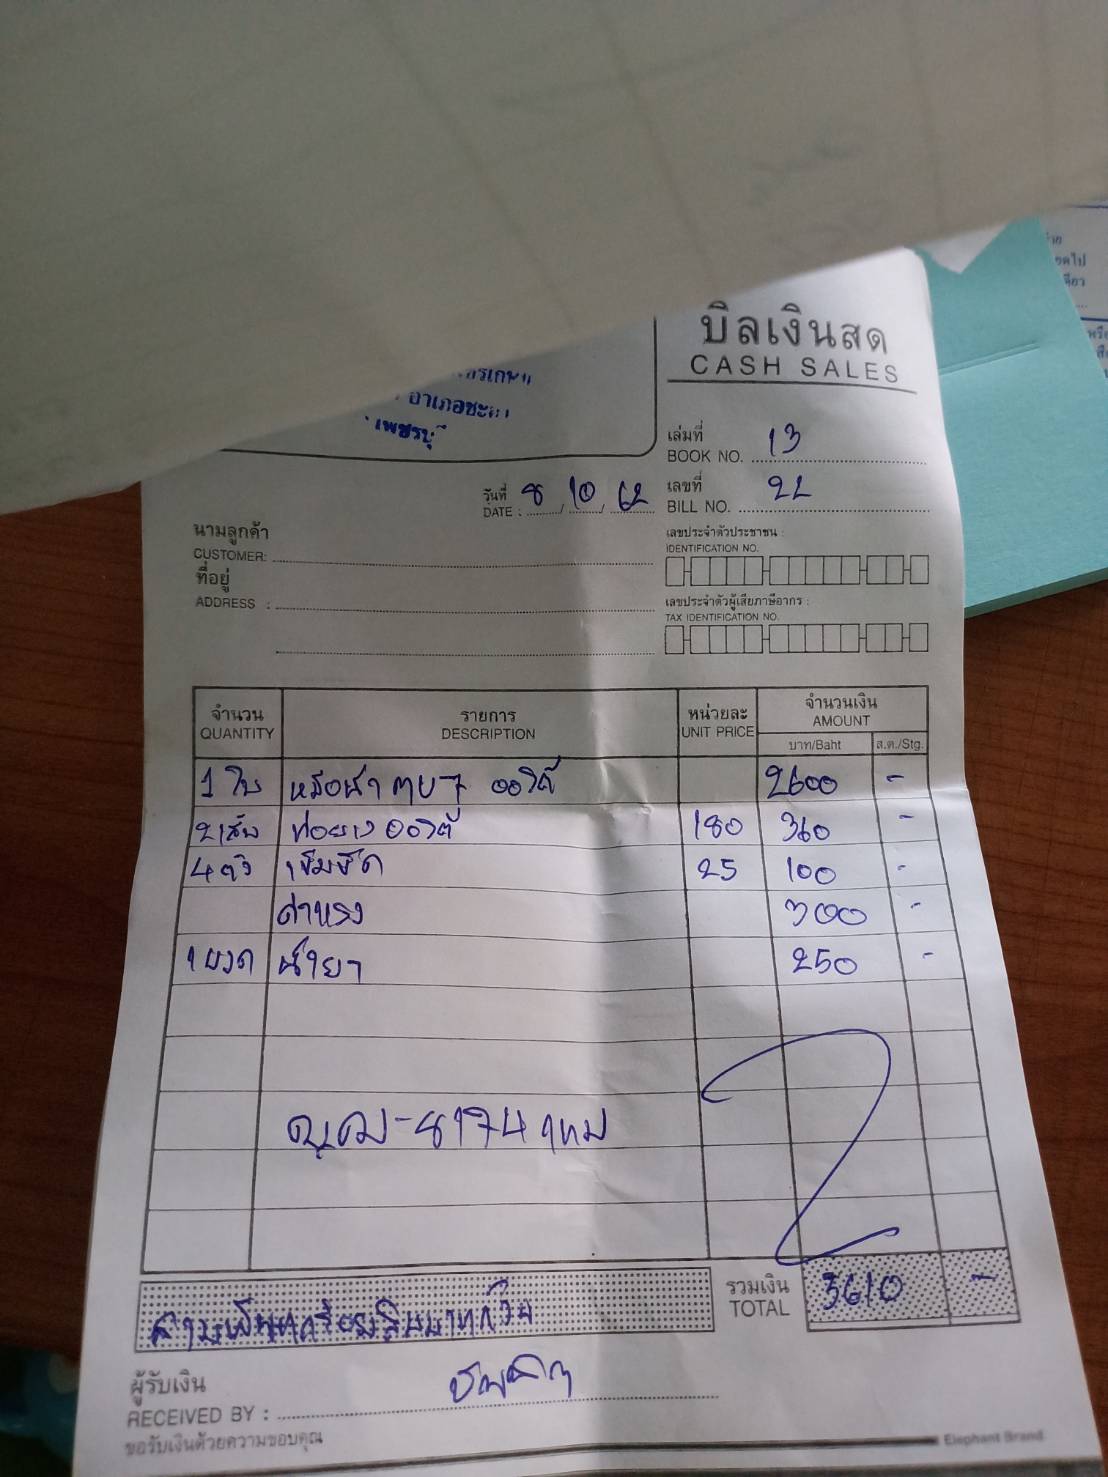 บิลเงินสด
CASH SALES
อำเภอชะอำ
เพชรบุ
เล่มที่
BOOK NO. 13
วันที่ 8 10 62
DATE : / /
เลขที่
BILL NO. 22
นามลูกค้า
CUSTOMER:
เลขประจำตัวประชาชน :
IDENTIFICATION NO.
ที่อยู่
ADDRESS :
เลขประจำตัวผู้เสียภาษีอากร :
TAX IDENTIFICATION NO.
จำนวน รายการ หน่วยละ จำนวนเงิน
QUANTITY DESCRIPTION UNIT PRICE AMOUNT
บาท/Baht ส.ต./Stg.
1 ใบ หม้อน้ำ 2600 -
2 เส้น ท่อยาง 180 360 -
4 ตัว เข็มขัด 25 100 -
ค่าแรง 300 -
1 ขวด น้ำยา 250 -
8174
รวมเงิน
TOTAL 3610 -
สามพันหกร้อยสิบบาทถ้วน
ผู้รับเงิน
RECEIVED BY :
ขอรับเงินด้วยความขอบคุณ
Elephant Brand